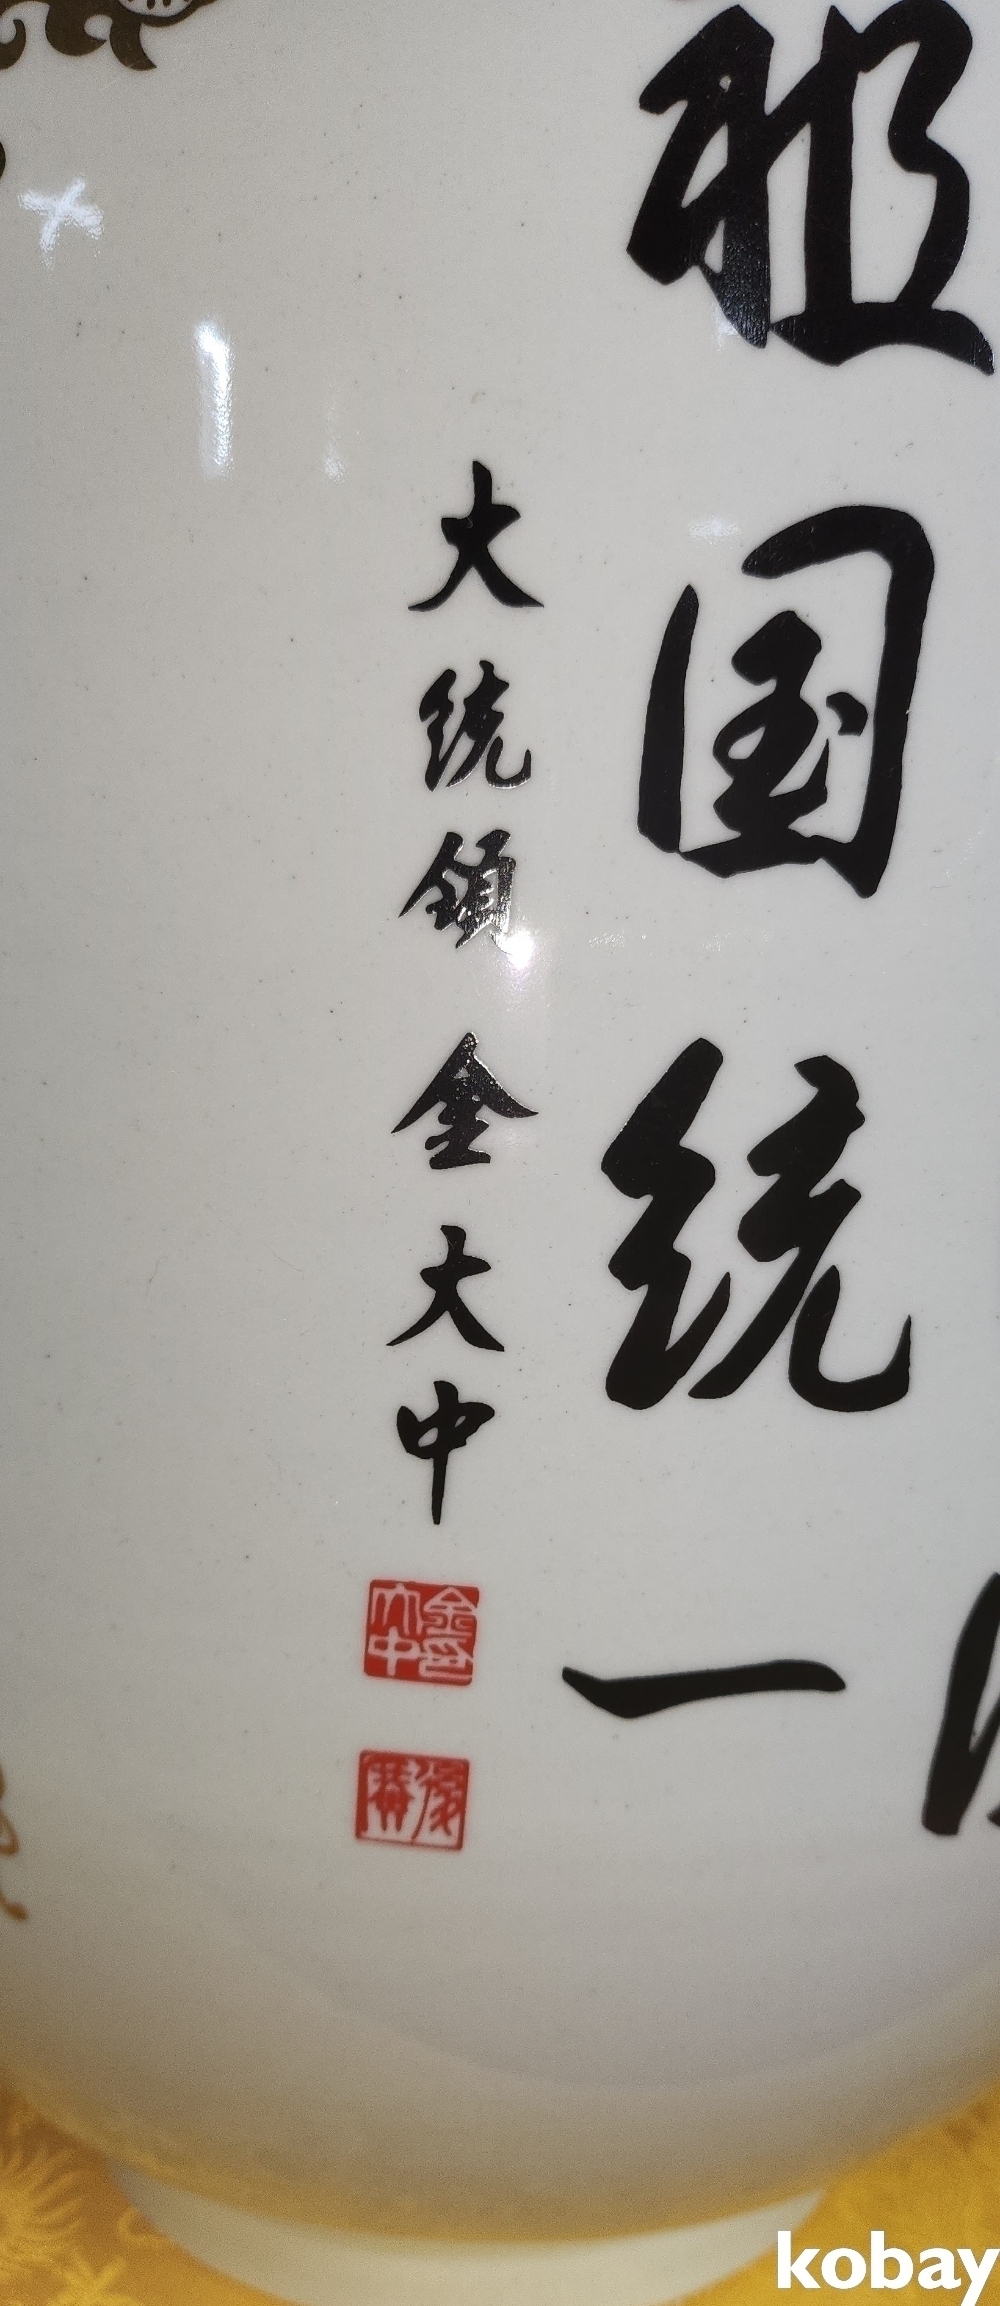 祖国统一
大统领 金大中
金大中印
后广
kobay